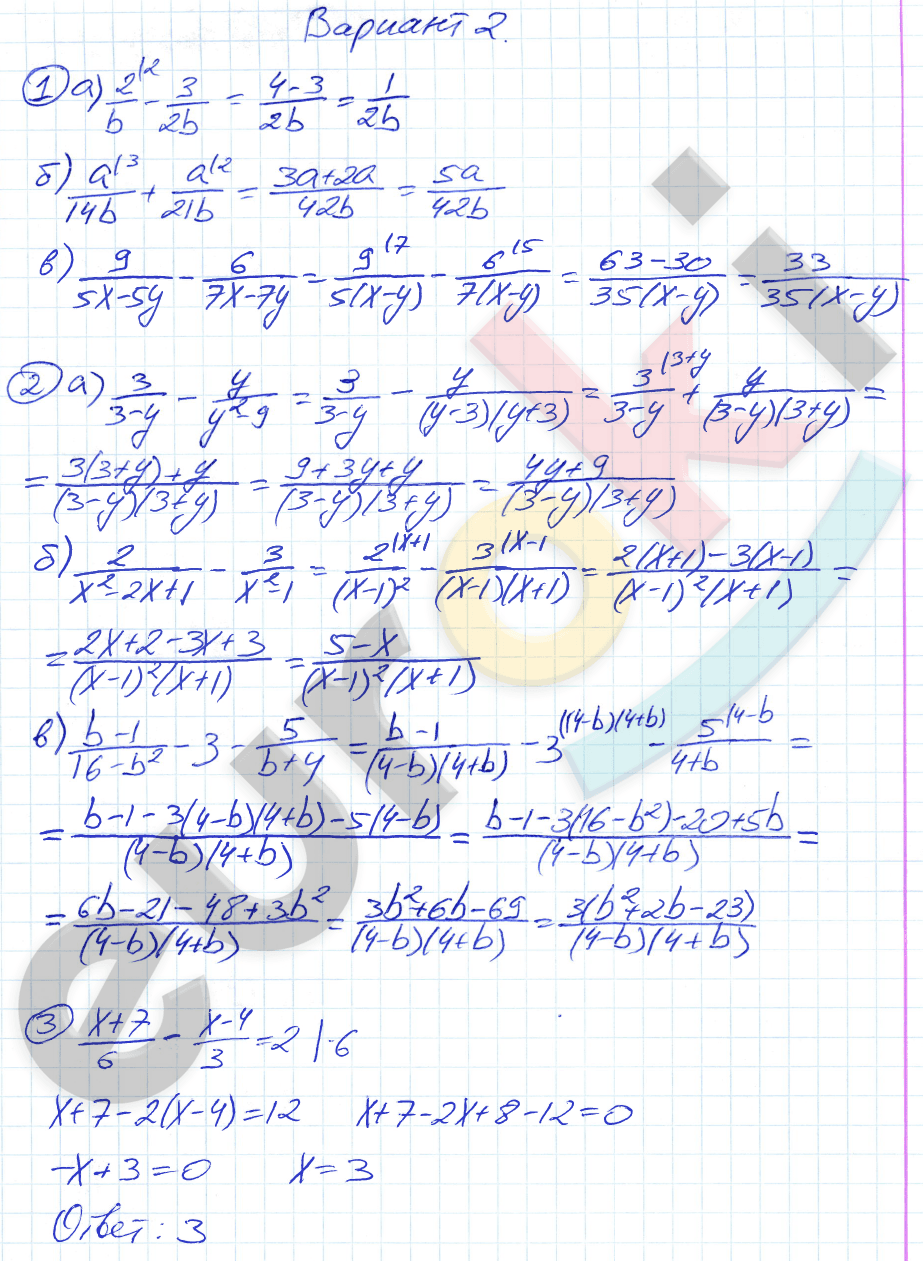 Вариант 2.
① а) 2^{\2}/b - 3/2b = (4-3)/2b = 1/2b
б) a^{\3}/14b + a^{\2}/21b = (3a+2a)/42b = 5a/42b
в) 9/(5x-5y) - 6/(7x-7y) = 9^{\7}/5(x-y) - 6^{\5}/7(x-y) = (63-30)/35(x-y) = 33/35(x-y)
② а) 3/(3-y) - y/(y²-9) = 3/(3-y) - y/(y-3)(y+3) = 3^{\3+y}/(3-y) + y/(3-y)(3+y) =
= (3(3+y)+y)/(3-y)(3+y) = (9+3y+y)/(3-y)(3+y) = (4y+9)/(3-y)(3+y)
б) 2/(x²-2x+1) - 3/(x²-1) = 2^{\x+1}/(x-1)² - 3^{\x-1}/(x-1)(x+1) = (2(x+1)-3(x-1))/(x-1)²(x+1) =
= (2x+2-3x+3)/(x-1)²(x+1) = (5-x)/(x-1)²(x+1)
в) (b-1)/(16-b²) - 3 - 5/(b+4) = (b-1)/(4-b)(4+b) - 3^{\(4-b)(4+b)} - 5^{\4-b}/(4+b) =
= (b-1-3(4-b)(4+b)-5(4-b))/(4-b)(4+b) = (b-1-3(16-b²)-20+5b)/(4-b)(4+b) =
= (6b-21-48+3b²)/(4-b)(4+b) = (3b²+6b-69)/(4-b)(4+b) = 3(b²+2b-23)/(4-b)(4+b)
③ (x+7)/6 - (x-4)/3 = 2 |·6
x+7-2(x-4)=12 x+7-2x+8-12=0
-x+3=0 x=3
Ответ: 3
euroki